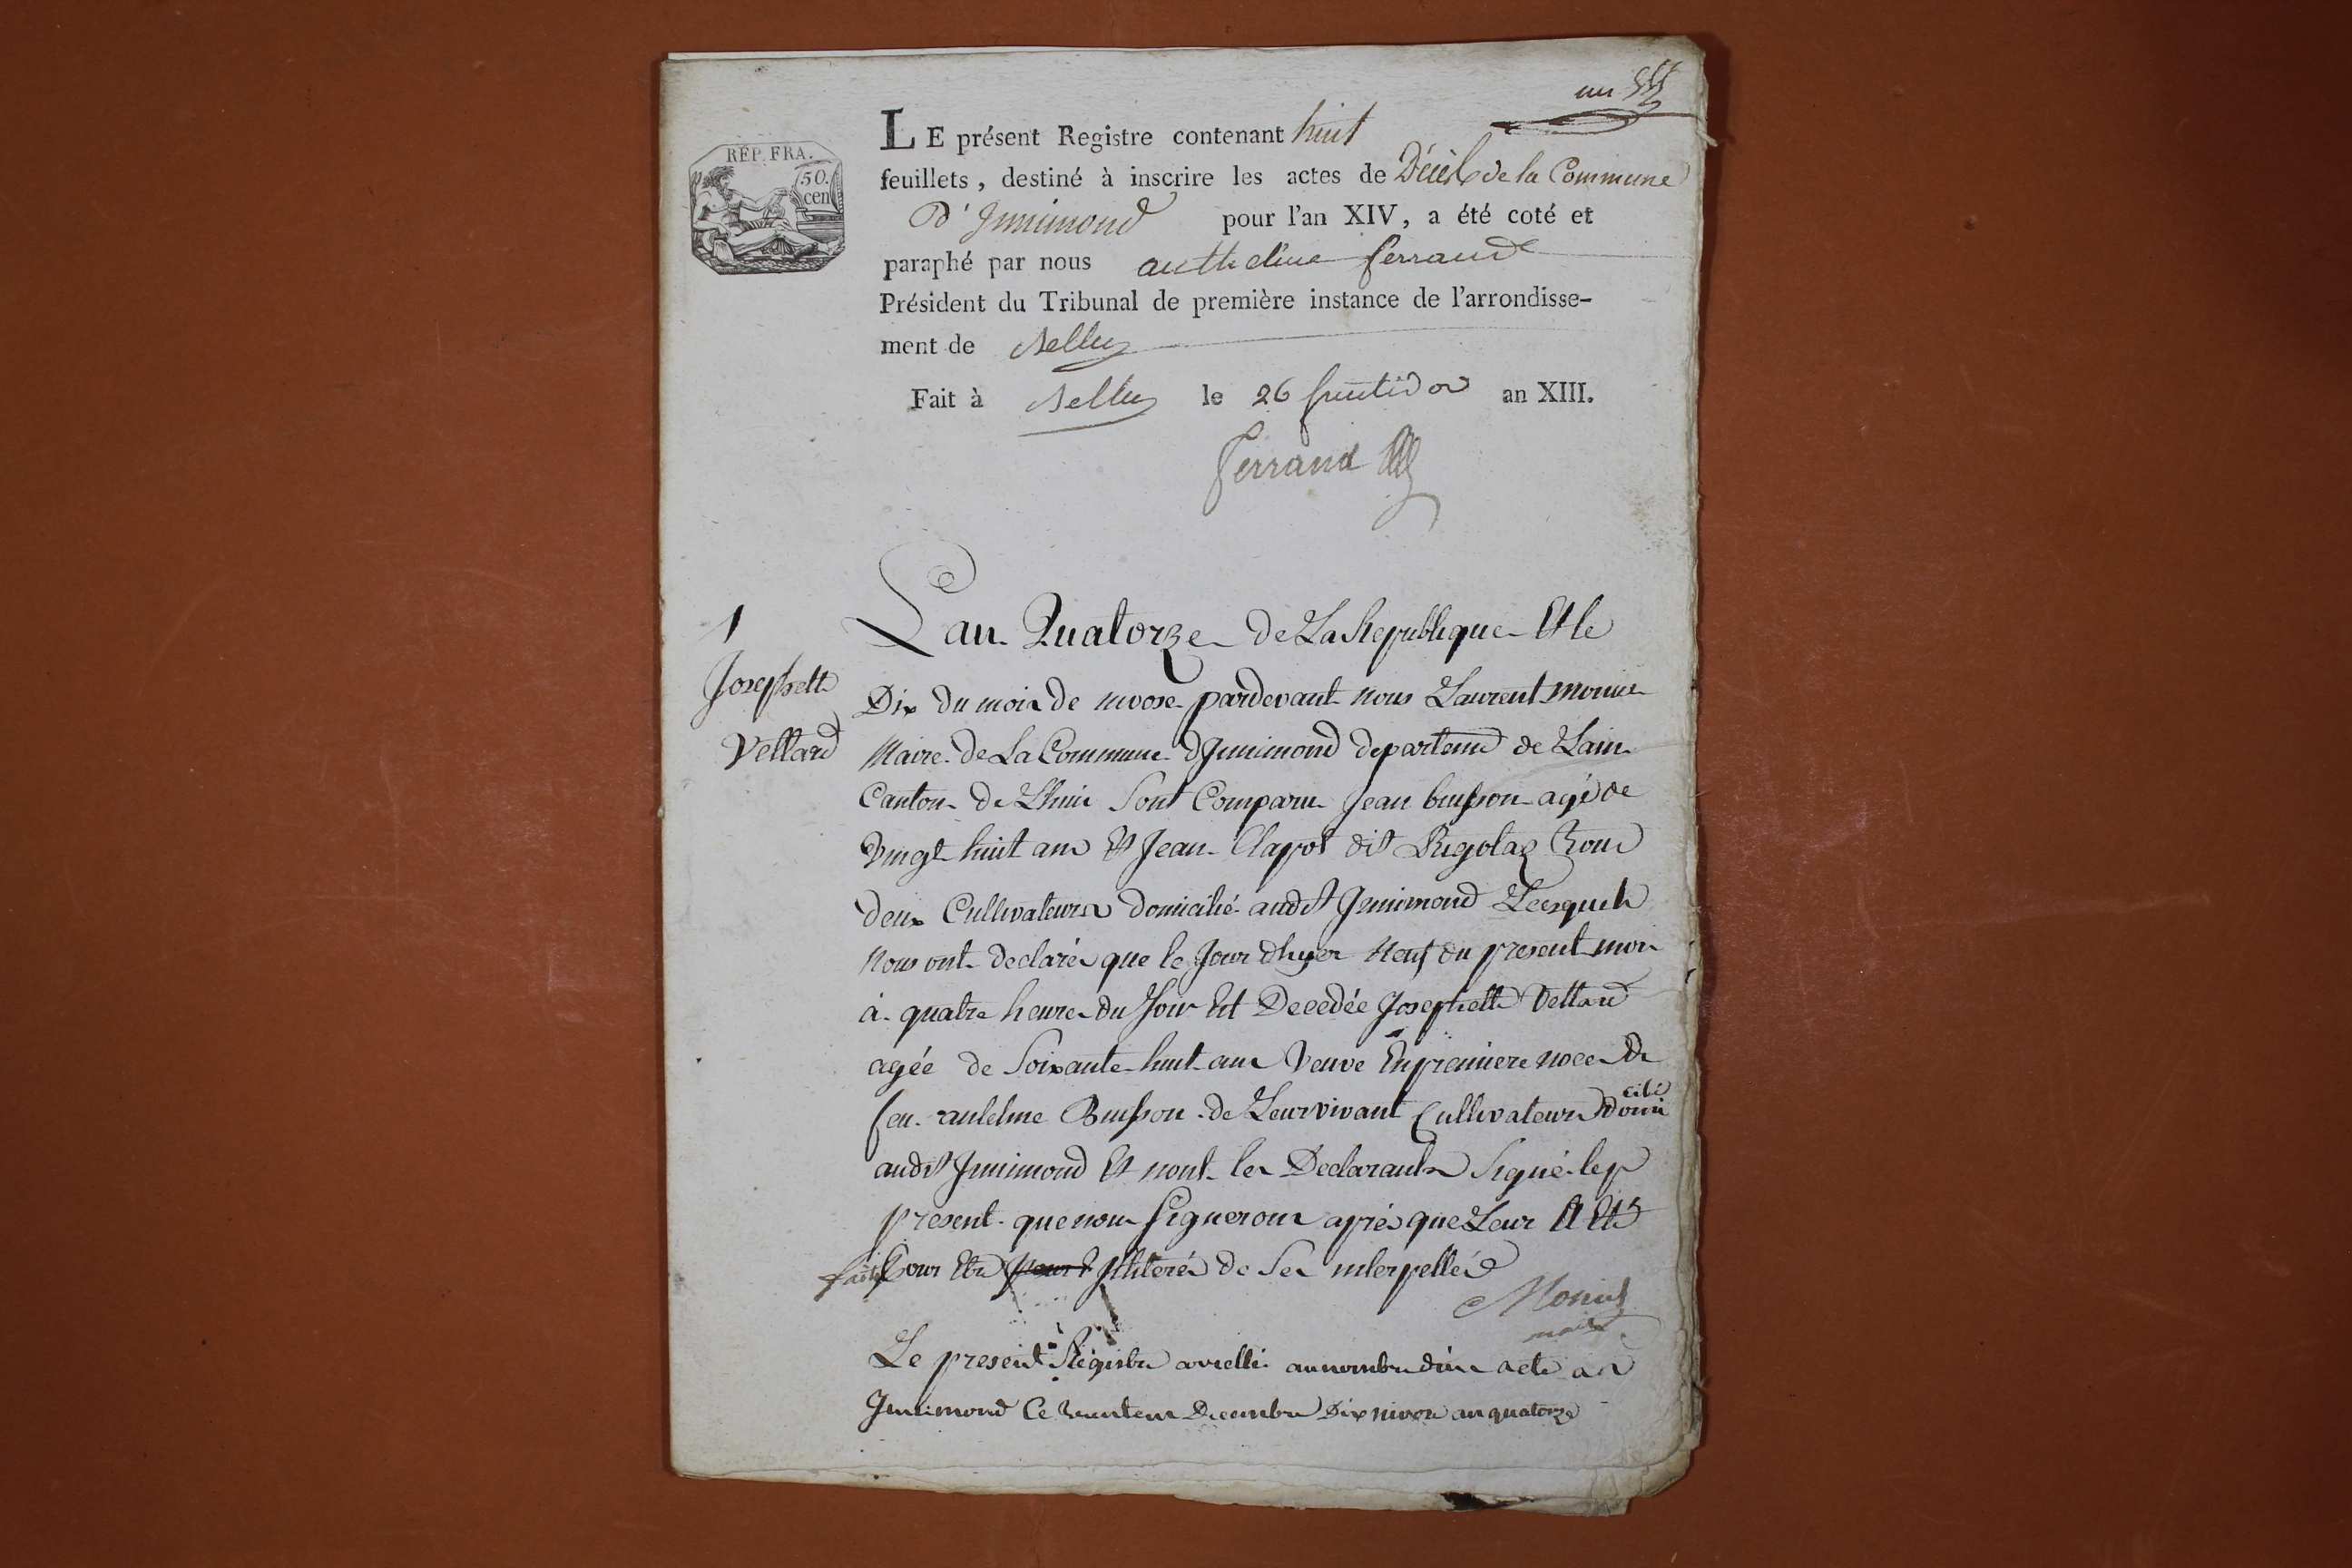 un
LE présent Registre contenant huit
feuillets, destiné à inscrire les actes de Décès de la Commune
D'Innimond pour l'an XIV, a été coté et
paraphé par nous anthelme ferrand
Président du Tribunal de première instance de l'arrondisse-
ment de Belley
Fait à Belley le 26 fructidor an XIII.
ferrand
RÉP. FRA.
50.
cen
1
Josephette
Vellard
L'an Quatorze de La Republique Et le
Dix du mois de nivose pardevant nous Laurent monin
Maire de La Commune d'Innimond departemt de Lain
Canton de Lhuis Sont Comparu Jean buisson agé de
Vingt huit ans Et Jean Clapot dit Rigolaz Tous
deux Cultivateurs domicilié audit Innimond Lesquels
Nous ont declarés que le Jour dhyer Neuf du present mois
à quatre heures du Soir Est Decedée Josephette Vellard
agée de Soixante huit ans Veuve En premiere noces De
feu antelme Buisson de Leur vivant Cultivateurs domicilié
audit Innimond Et nont les Declarants Signé le p
present que nous Signerons après que Leur A Eté
fait Pour Etre Illiterés de Ses interpellés
Monin
maire
Le present Régistre arretté au nombre dun acte a
Innimond Ce trente un Decembre Dix nivose an quatorze